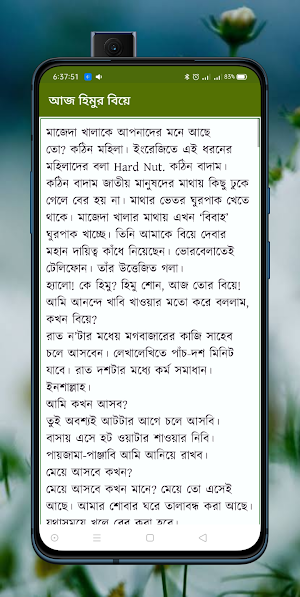 6:37:51
83%
আজ হিমুর বিয়ে
মাজেদা খালাকে আপনাদের মনে আছে
তো? কঠিন মহিলা। ইংরেজিতে এই ধরনের
মহিলাদের বলা Hard Nut. কঠিন বাদাম।
কঠিন বাদাম জাতীয় মানুষদের মাথায় কিছু ঢুকে
গেলে বের হয় না। মাথার ভেতর ঘুরপাক খেতে
থাকে। মাজেদা খালার মাথায় এখন ‘বিবাহ’
ঘুরপাক খাচ্ছে। তিনি আমাকে বিয়ে দেবার
মহান দায়িত্ব কাঁধে নিয়েছেন। ভোরবেলাতেই
টেলিফোন। তাঁর উত্তেজিত গলা।
হ্যালো! কে হিমু? হিমু শোন, আজ তোর বিয়ে!
আমি আনন্দে খাবি খাওয়ার মতো করে বললাম,
কখন বিয়ে?
রাত ন'টার মধ্যে মগবাজারের কাজি সাহেব
চলে আসবেন। লেখালেখিতে পাঁচ-দশ মিনিট
যাবে। রাত দশটার মধ্যে কর্ম সমাধান।
ইনশাল্লাহ।
আমি কখন আসব?
তুই অবশ্যই আটটার আগে চলে আসবি।
বাসায় এসে হট ওয়াটার শাওয়ার নিবি।
পায়জামা-পাঞ্জাবি আমি আনিয়ে রাখব।
মেয়ে আসবে কখন?
মেয়ে আসবে কখন মানে? মেয়ে তো এসেই
আছে। আমার শোবার ঘরে তালাবন্ধ করা আছে।
যথাসময়ে খুলে বের করা হবে।